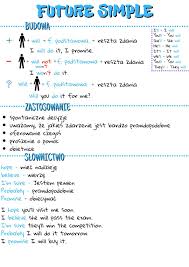 FUTURE SIMPLE
BUDOWA
+ will + f. podstawowa + reszta zdania
I will do it, I promise.
- will not + f. podstawowa + reszta zdania
won't
I won't do it.
? Will + f. podstawowa + reszta zdania
Will you do it for me?
ZASTOSOWANIE
spontaniczne decyzje
uważamy, że jakieś zdarzenie jest bardzo prawdopodobne
oferowanie czegoś
prośzenie o pomoc
obietnice
SŁOWNICTWO
hope - mieć nadzieję
believe - wierzyć
I'm sure - Jestem pewien
Probably - prawdopodobnie
Promise - obiecywać
I hope you'll visit me soon
I believe she will pass the exam.
I'm sure they'll win the competition.
I probably will do it tomorrow
I promise I will buy it.